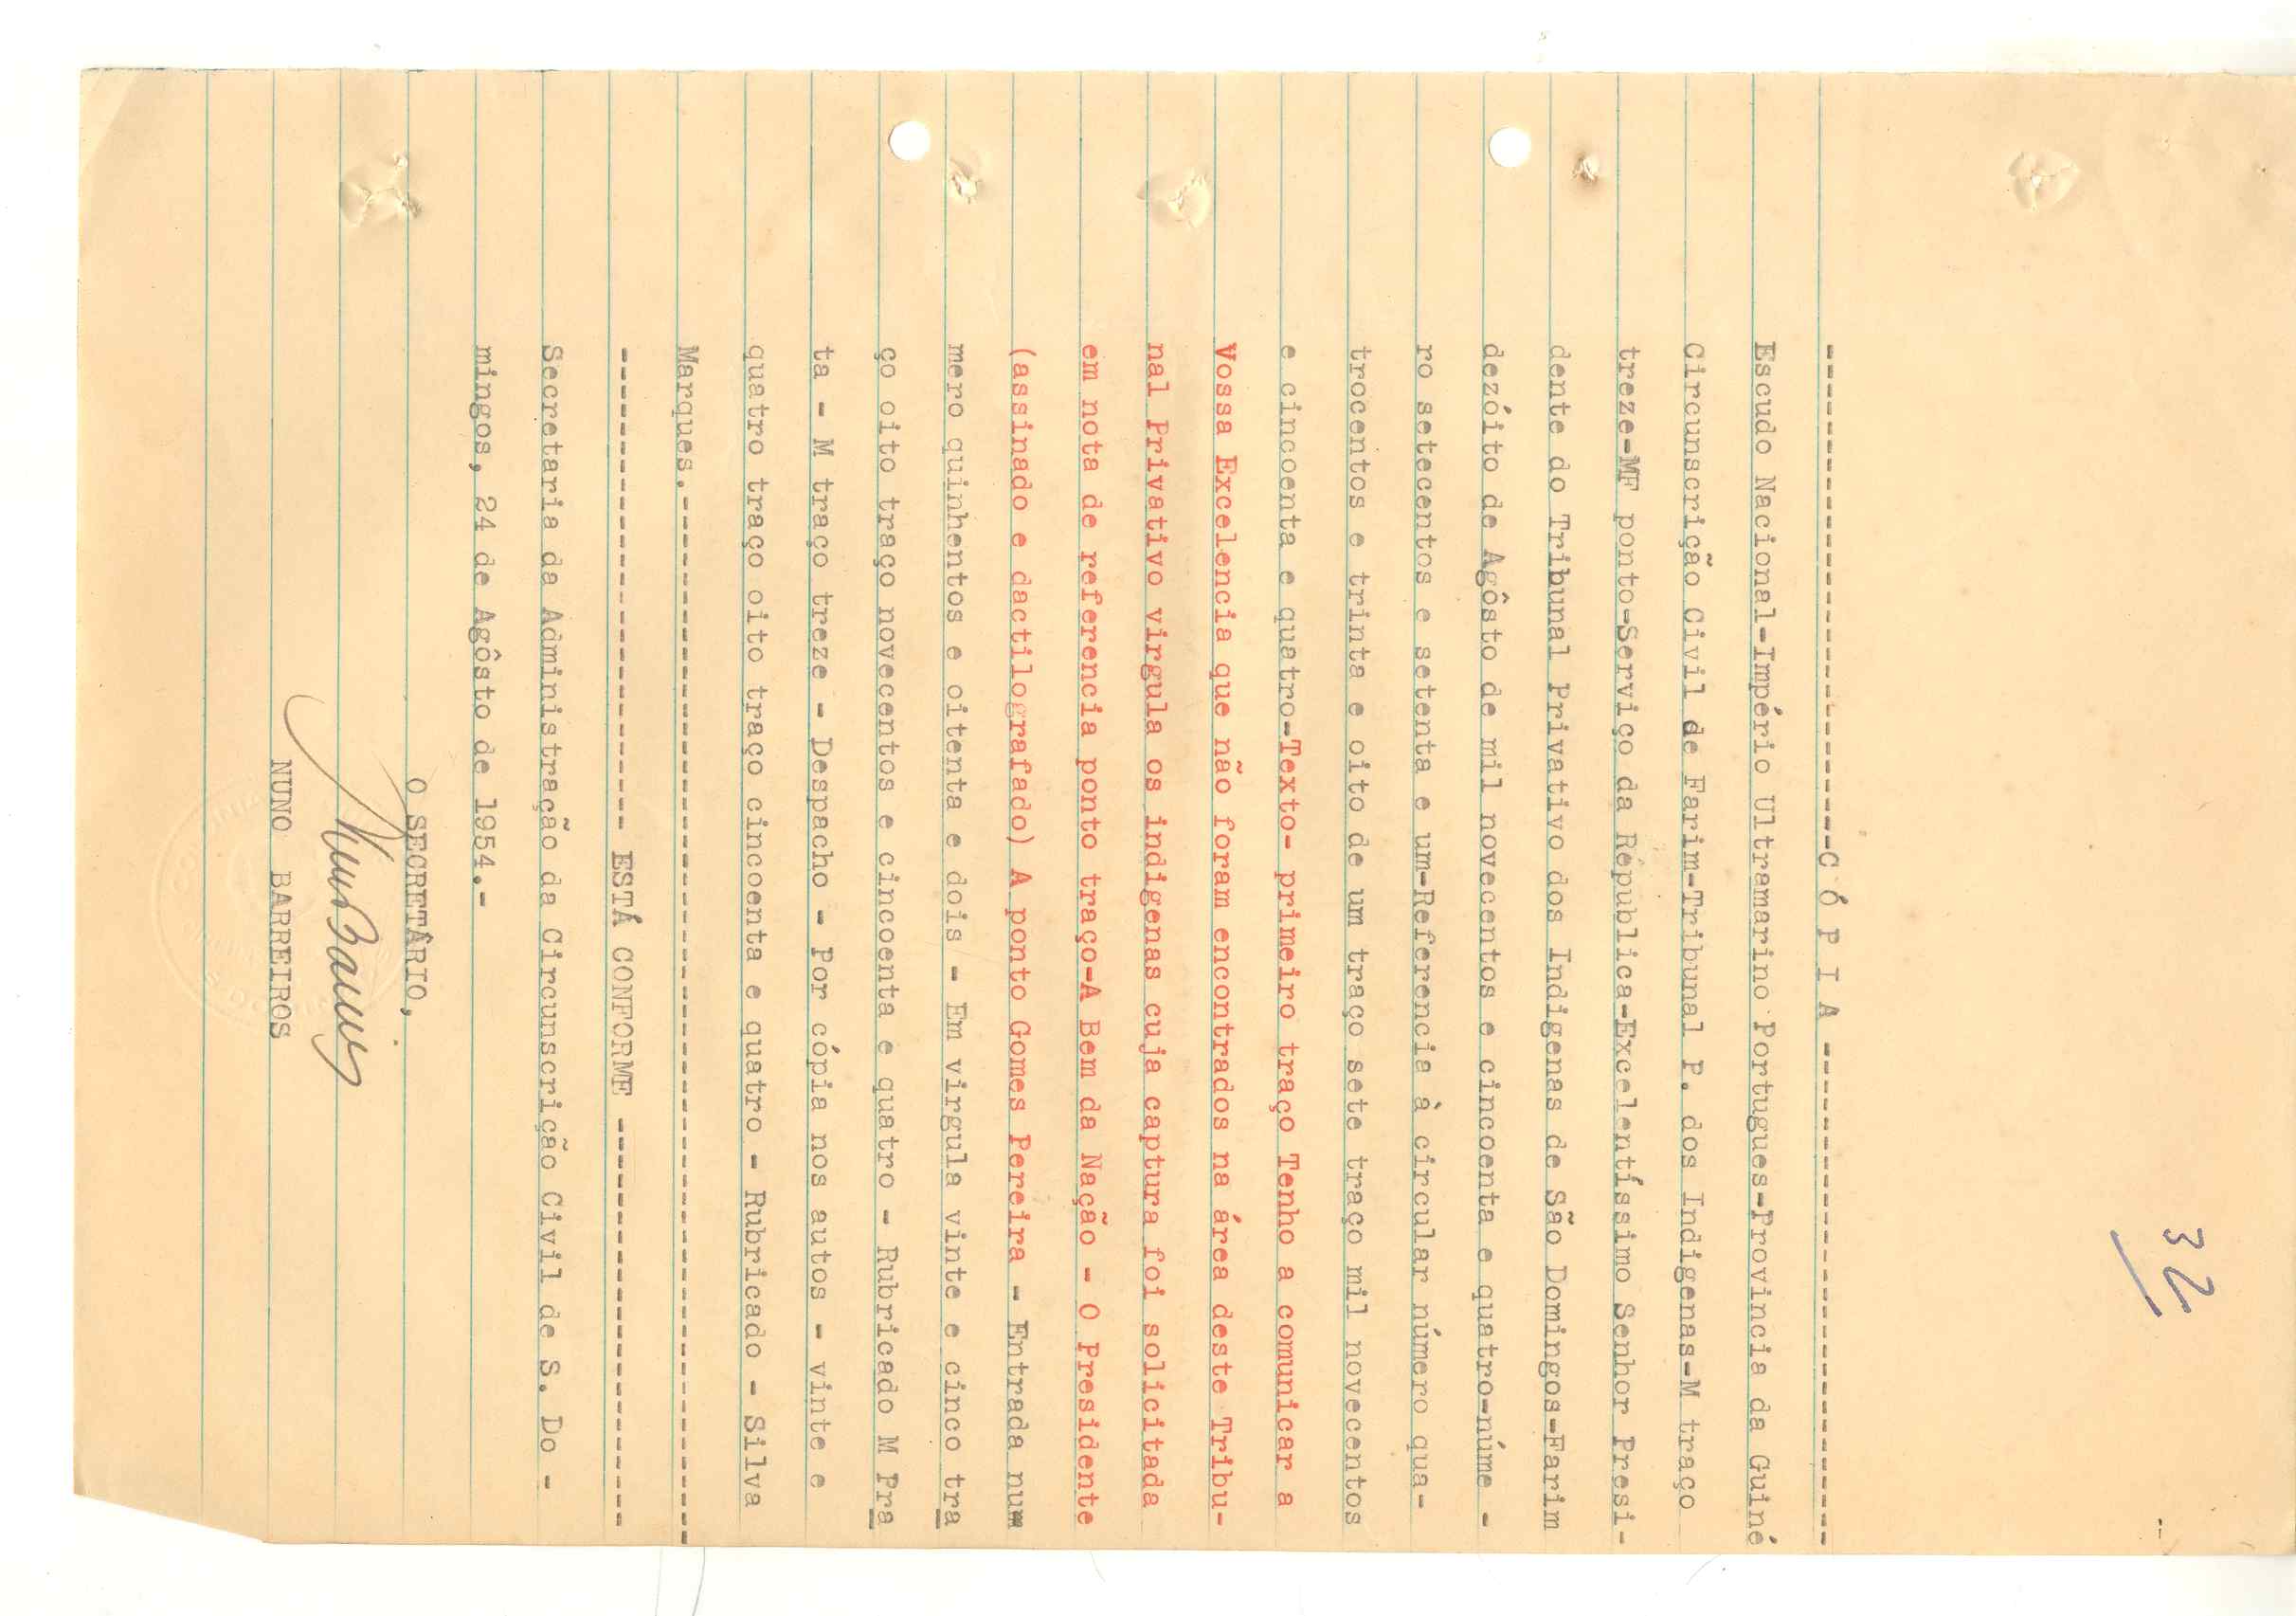 32
------------------------------C Ó P I A ------------------------------
Escudo Nacional-Império Ultramarino Portugues-Provincia da Guiné
Circunscrição Civil de Farim-Tribunal P. dos Indigenas-M traço
treze-MF ponto-Serviço da Républica-Excelentíssimo Senhor Presi-
dente do Tribunal Privativo dos Indigenas de São Domingos-Farim
dezóito de Agôsto de mil novecentos e cincoenta e quatro-núme -
ro setecentos e setenta e um-Referencia à circular número qua-
trocentos e trinta e oito de um traço sete traço mil novecentos
e cincoenta e quatro-Texto- primeiro traço Tenho a comunicar a
Vossa Excelencia que não foram encontrados na área deste Tribu-
nal Privativo virgula os indigenas cuja captura foi solicitada
em nota de referencia ponto traço-A Bem da Nação - O Presidente
(assinado e dactilografado) A ponto Gomes Pereira - Entrada num
mero quinhentos e oitenta e dois - Em virgula vinte e cinco tra
ço oito traço novecentos e cincoenta e quatro - Rubricado M Pra
ta - M traço treze - Despacho - Por cópia nos autos - vinte e
quatro traço oito traço cincoenta e quatro - Rubricado - Silva
Marques.-----------------------------------------------------------
----------------------------- ESTÁ CONFORME -------------------------
Secretaria da Administração da Circunscrição Civil de S. Do -
mingos, 24 de Agôsto de 1954.-
O SECRETÁRIO,
Nuno Barreiros
NUNO BARREIROS